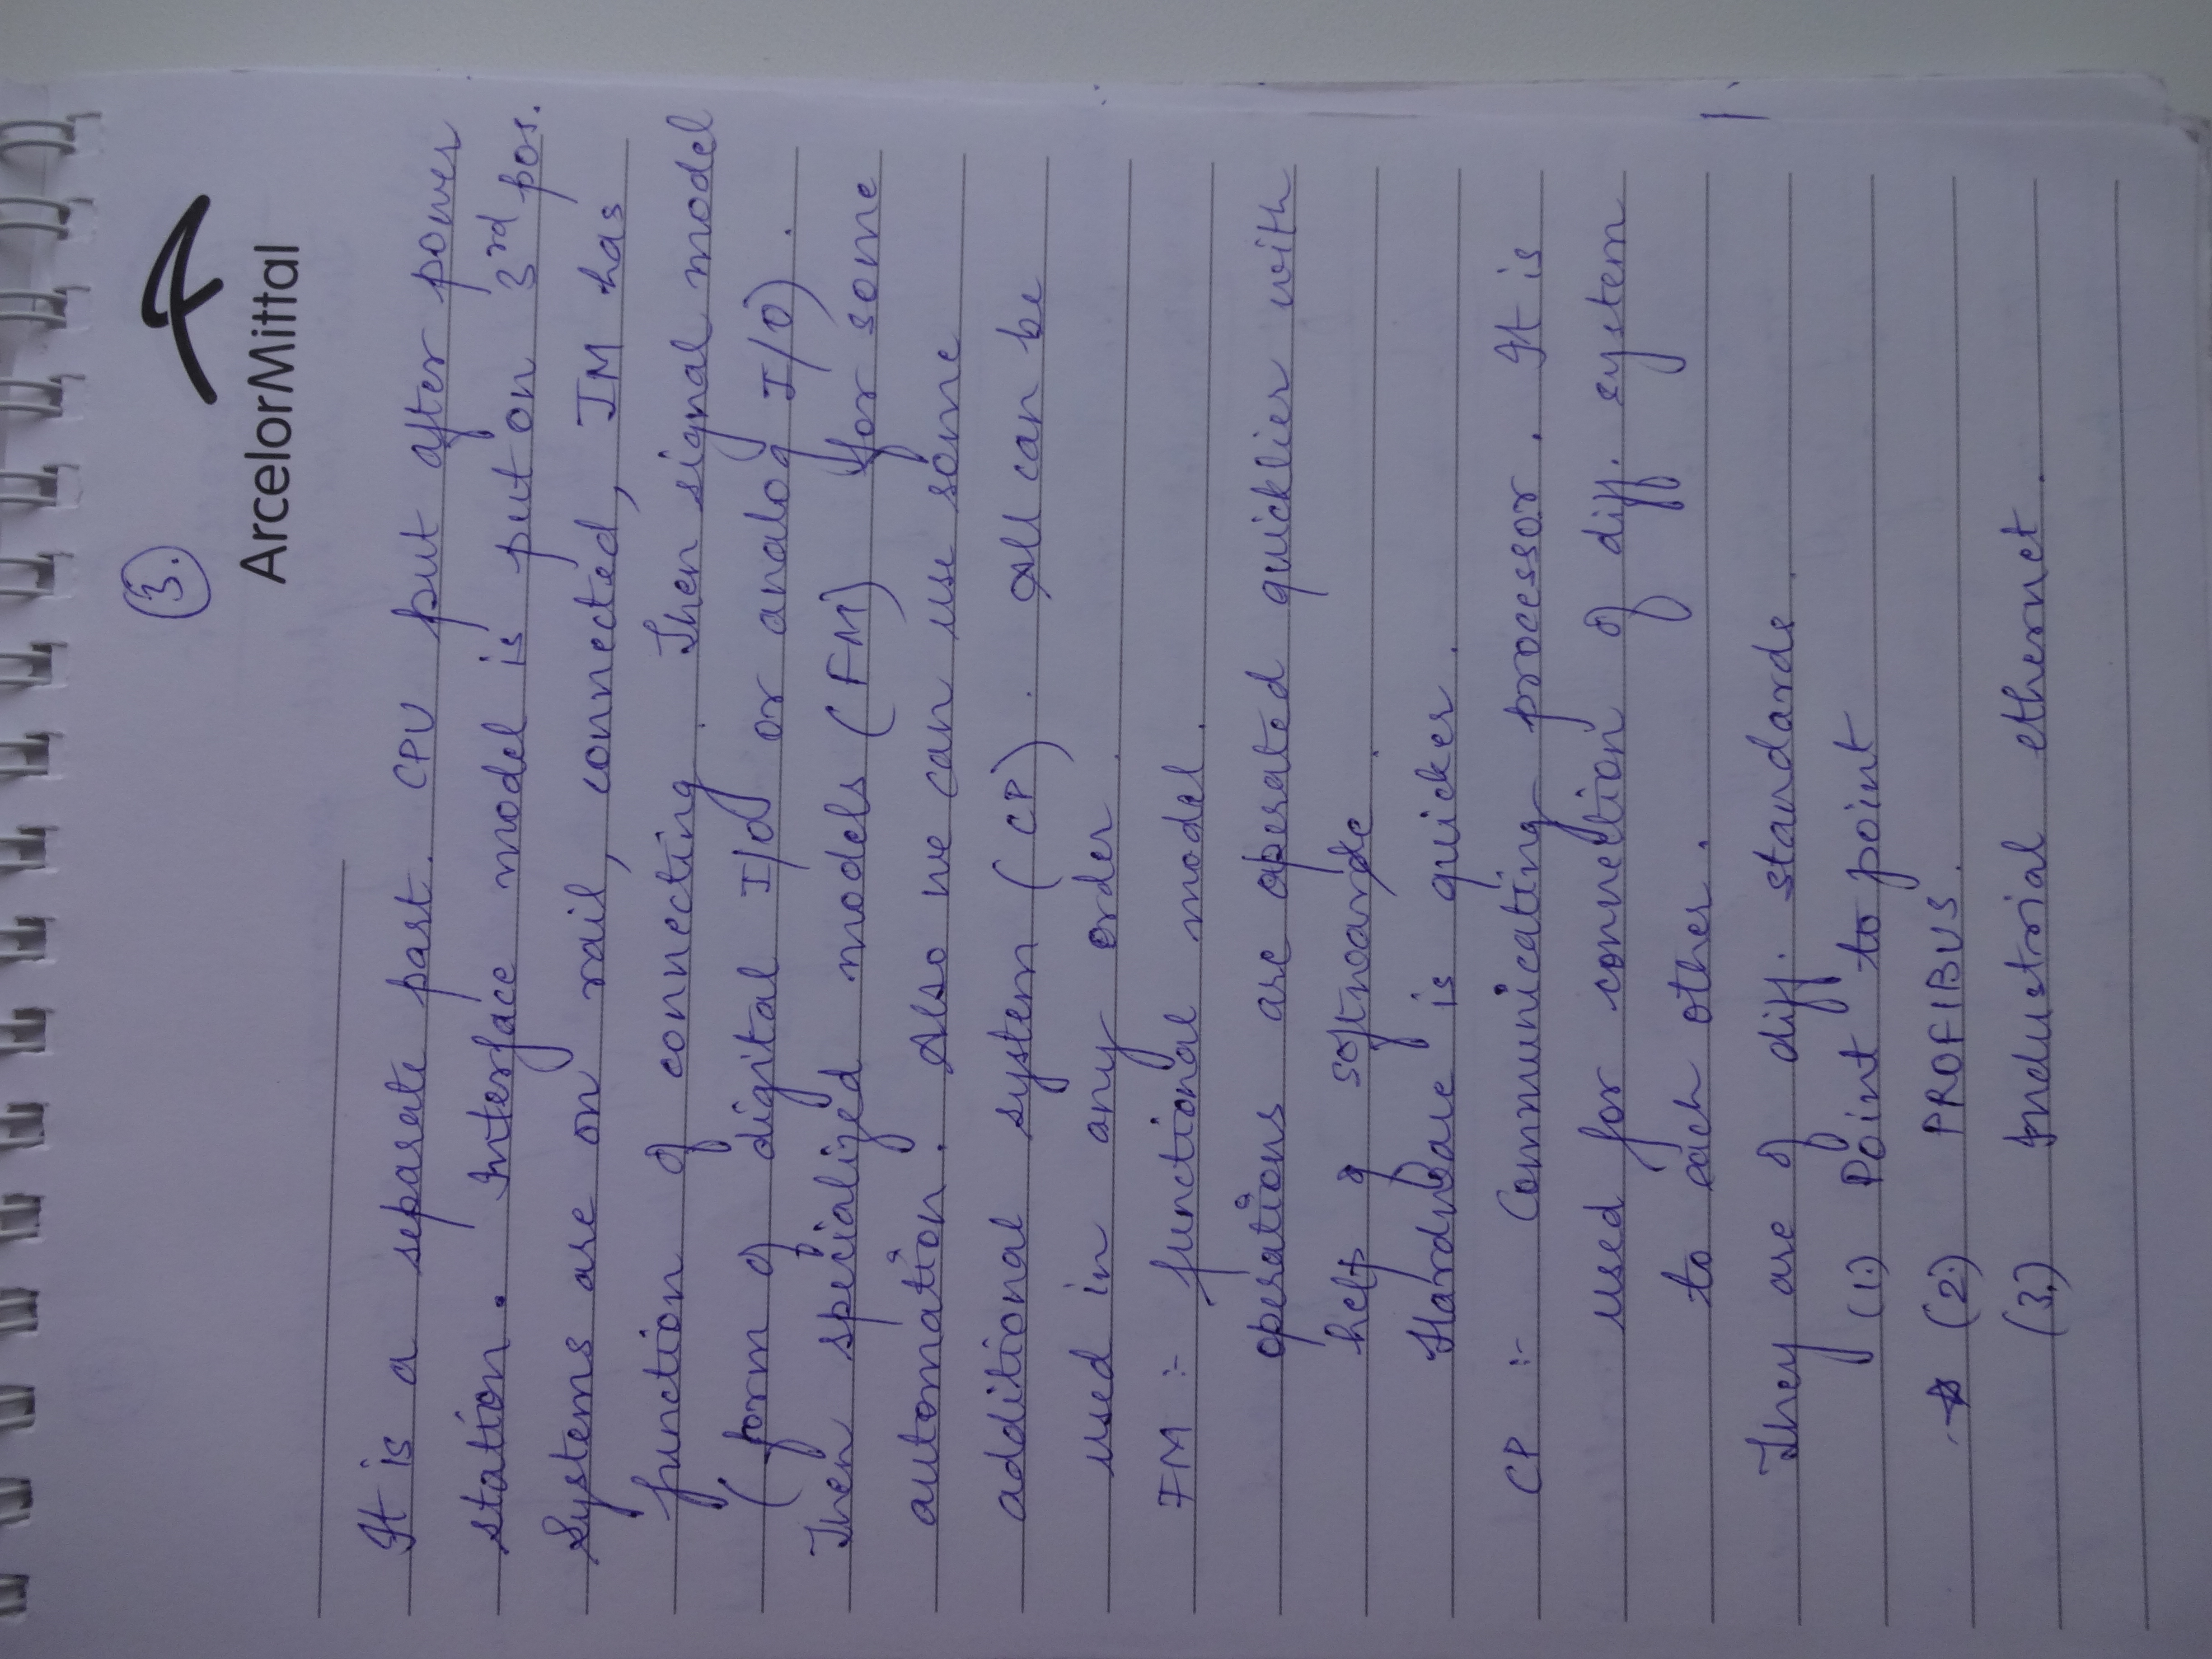 (3.)
ArcelorMittal
It is a separate part. CPU put after power
station. Interface model is put on 3rd pos.
Systems are on rail, connected, IM has
function of connecting. Then signal model
(form of digital I/O or analog I/O).
Then specialized models (FM) for some
automation. Also we can use some
additional system (CP). All can be
used in any order.
FM :- functional model.
operations are operated quicklier with
help of software.
Hardware is quicker.
CP :- Communicating processor. It is
used for connection of diff. system
to each other.
They are of diff. standards.
(1.) Point to point
(2.) PROFIBUS.
(3.) Industrial ethernet.